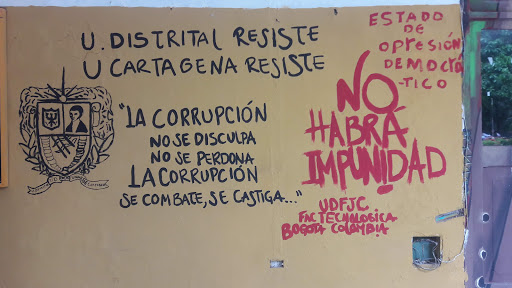 U. DISTRITAL RESISTE
U CARTAGENA RESISTE
"LA CORRUPCIÓN
NO SE DISCULPA
NO SE PERDONA
LA CORRUPCIÓN
SE COMBATE, SE CASTIGA..."
ESTADO
DE
OPRESIÓN
DEMOCRÁ
-TICO
NO
HABRÁ
IMPUNIDAD
UDFJC
FAC TECNOLOGICA
BOGOTA COLOMBIA